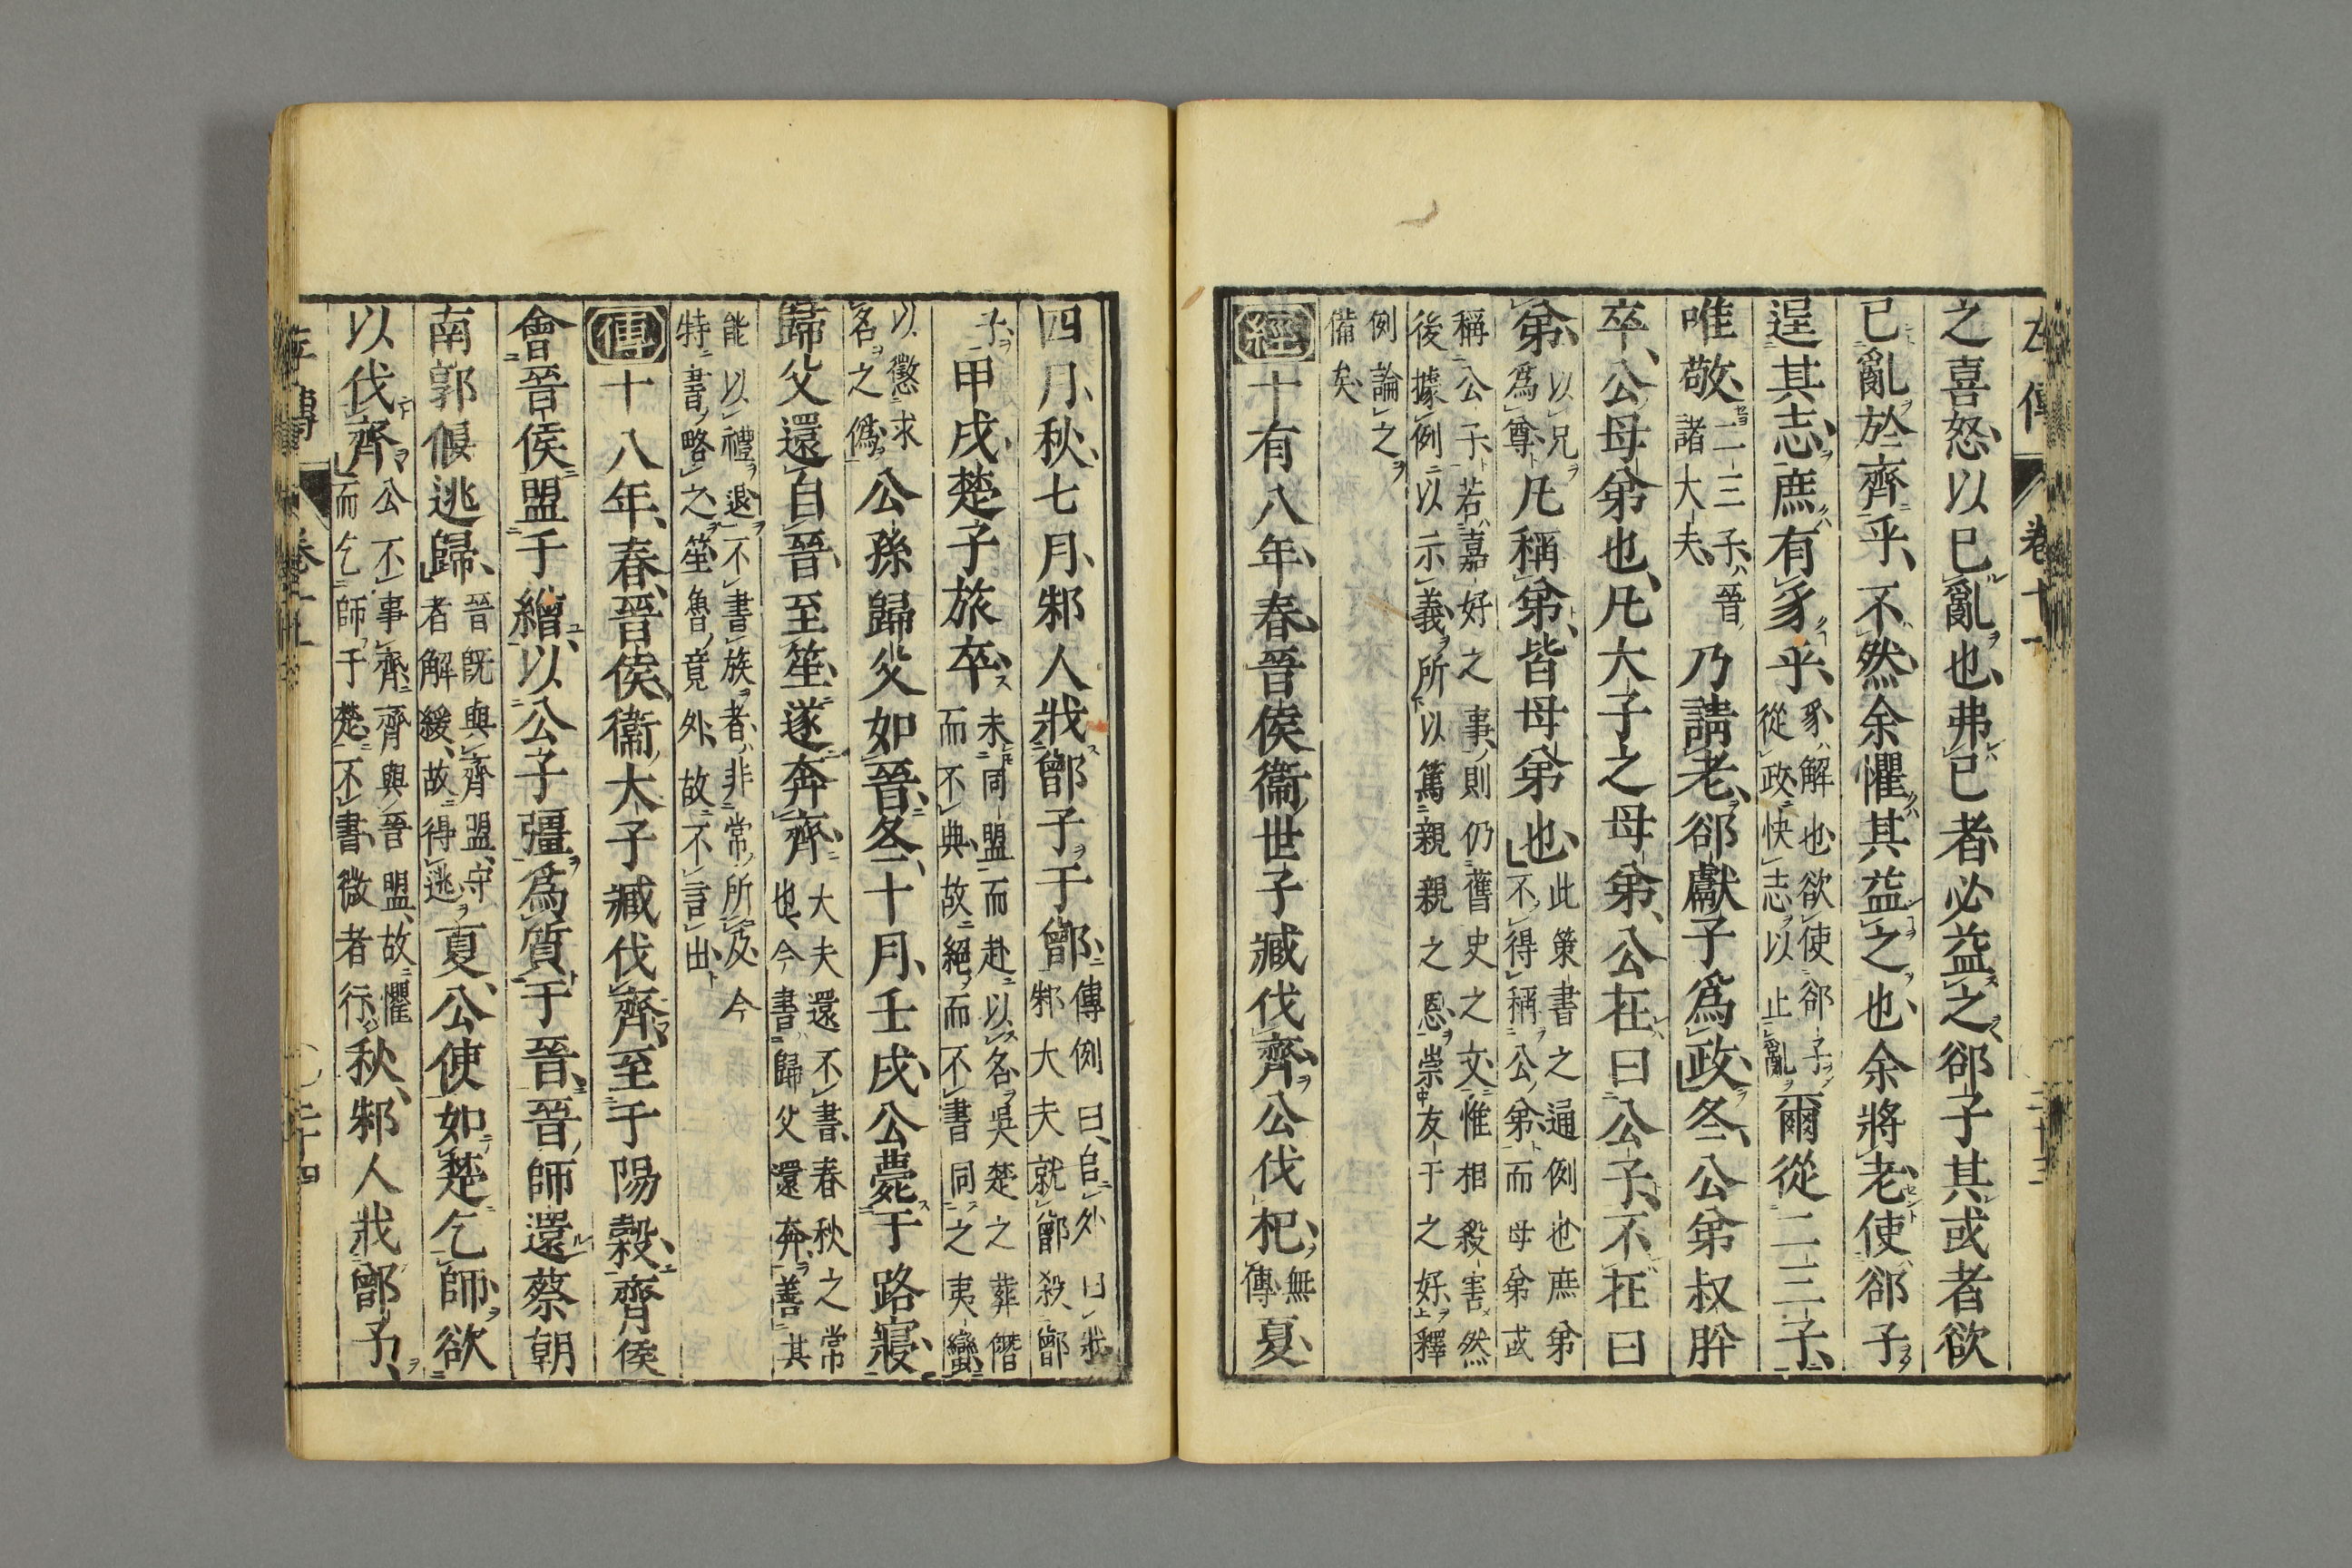 左傳 卷十一 二十三
之喜怒以已亂也弗已者必益之郤子其或者欲
已亂於齊乎不然余懼其益之也余將老使郤子
逞其志庶有豸乎豸解也欲使郤子從政快志以止亂爾從二三子
唯敬二三子晉諸大夫乃請老郤獻子爲政冬公弟叔肸
卒公母弟也凡大子之母弟公在曰公子不在曰
弟以兄爲尊凡稱弟皆母弟也此策書之通例也庶弟不得稱公弟而母弟或
稱公子若嘉好之事則仍舊史之文惟相殺害然
後據例以示義所以篤親親之恩崇友于之好釋
例論之
備矣
經十有八年春晉侯衞世子臧伐齊公伐杞無傳夏
四月秋七月邾人戕鄫子于鄫傳例曰自外曰戕邾大夫就鄫殺鄫
子甲戌楚子旅卒未同盟而赴以名吳楚之葬僭而不典故絕而不書同之夷蠻
以懲求名之僞公孫歸父如晉冬十月壬戌公薨于路寢
歸父還自晉至笙遂奔齊大夫還不書春秋之常也今書歸父還奔善其
能以禮退不書族者非常所及今
特書略之笙魯竟外故不言出
傳十八年春晉侯衞大子臧伐齊至于陽穀齊侯
會晉侯盟于繒以公子彊爲質于晉晉師還蔡朝
南郭偃逃歸晉既與齊盟守者解緩故得逃夏公使如楚乞師欲
以伐齊公不事齊齊與晉盟故懼而乞師于楚不書微者行秋邾人戕鄫子
左傳 卷十一 二十四